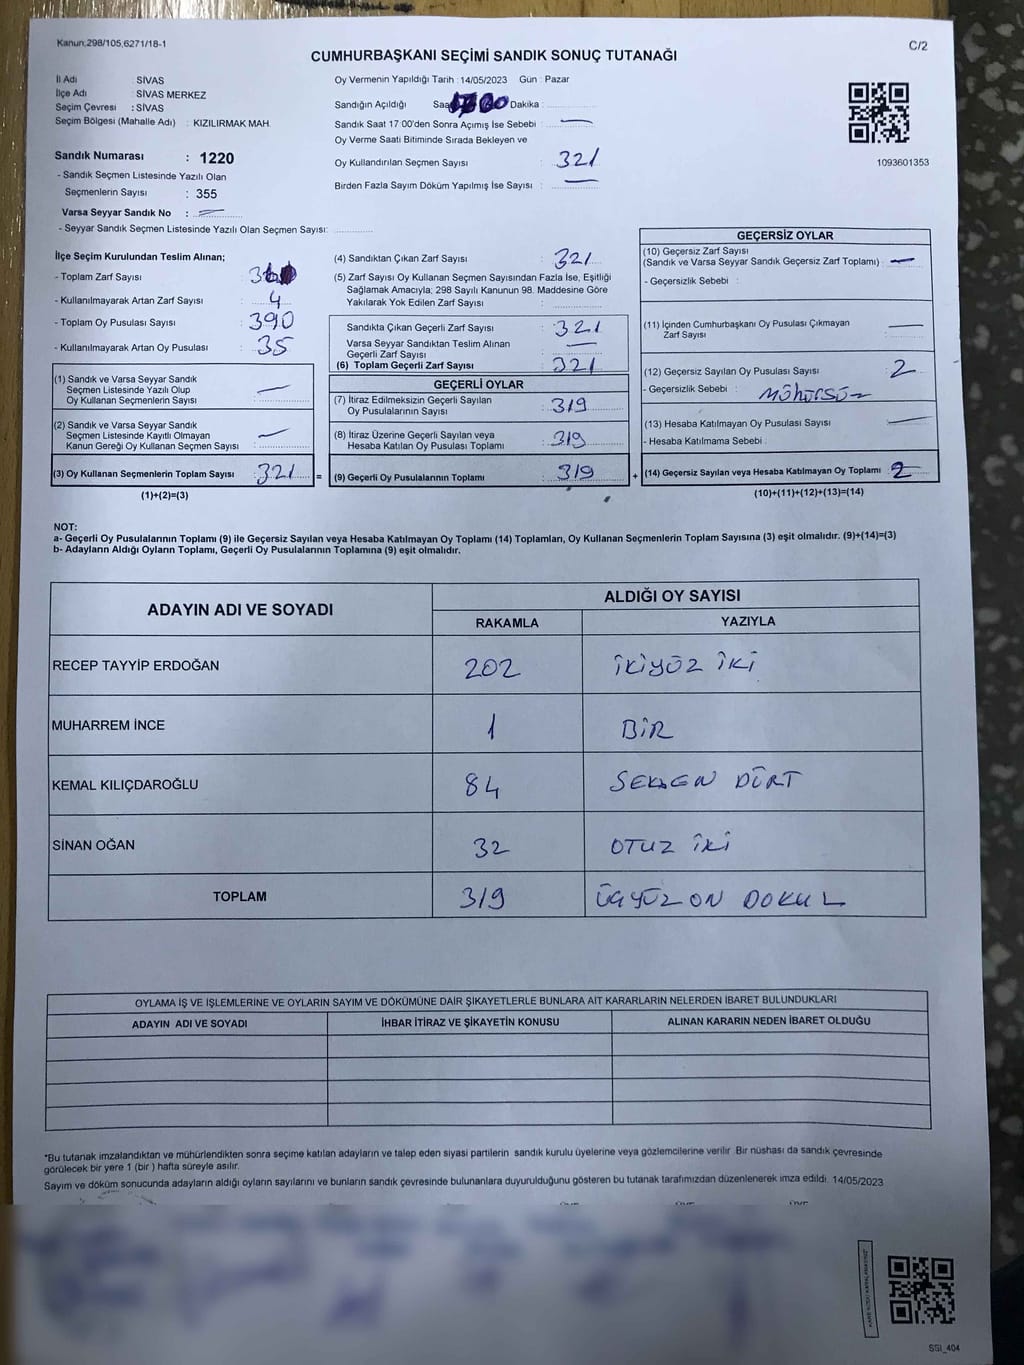 Kanun;298/105,6271/18-1
C/2
CUMHURBAŞKANI SEÇİMİ SANDIK SONUÇ TUTANAĞI
İl Adı : SİVAS
İlçe Adı : SİVAS MERKEZ
Seçim Çevresi : SİVAS
Seçim Bölgesi (Mahalle Adı) : KIZILIRMAK MAH.
Sandık Numarası : 1220
- Sandık Seçmen Listesinde Yazılı Olan
Seçmenlerin Sayısı : 355
Varsa Seyyar Sandık No :
- Seyyar Sandık Seçmen Listesinde Yazılı Olan Seçmen Sayısı:
Oy Vermenin Yapıldığı Tarih : 14/05/2023 Gün : Pazar
Sandığın Açıldığı Saat Dakika :
Sandık Saat 17:00'den Sonra Açımış İse Sebebi :
Oy Verme Saati Bitiminde Sırada Bekleyen ve
Oy Kullandırılan Seçmen Sayısı : 321
Birden Fazla Sayım Döküm Yapılmış İse Sayısı :
1093601353
İlçe Seçim Kurulundan Teslim Alınan;
- Toplam Zarf Sayısı :
- Kullanılmayarak Artan Zarf Sayısı : 4
- Toplam Oy Pusulası Sayısı : 390
- Kullanılmayarak Artan Oy Pusulası : 35
(1) Sandık ve Varsa Seyyar Sandık
Seçmen Listesinde Yazılı Olup
Oy Kullanan Seçmenlerin Sayısı :
(2) Sandık ve Varsa Seyyar Sandık
Seçmen Listesinde Kayıtlı Olmayan
Kanun Gereği Oy Kullanan Seçmen Sayısı :
(3) Oy Kullanan Seçmenlerin Toplam Sayısı : 321 =
(1)+(2)=(3)
(4) Sandıktan Çıkan Zarf Sayısı : 321
(5) Zarf Sayısı Oy Kullanan Seçmen Sayısından Fazla İse, Eşitliği
Sağlamak Amacıyla; 298 Sayılı Kanunun 98. Maddesine Göre
Yakılarak Yok Edilen Zarf Sayısı :
Sandıkta Çıkan Geçerli Zarf Sayısı : 321
Varsa Seyyar Sandıktan Teslim Alınan
Geçerli Zarf Sayısı :
(6) Toplam Geçerli Zarf Sayısı : 321
GEÇERLİ OYLAR
(7) İtiraz Edilmeksizin Geçerli Sayılan
Oy Pusulalarının Sayısı : 319
(8) İtiraz Üzerine Geçerli Sayılan veya
Hesaba Katılan Oy Pusulası Toplamı : 319
(9) Geçerli Oy Pusulalarının Toplamı : 319 +
GEÇERSİZ OYLAR
(10) Geçersiz Zarf Sayısı
(Sandık ve Varsa Seyyar Sandık Geçersiz Zarf Toplamı) :
- Geçersizlik Sebebi :
(11) İçinden Cumhurbaşkanı Oy Pusulası Çıkmayan
Zarf Sayısı :
(12) Geçersiz Sayılan Oy Pusulası Sayısı : 2
- Geçersizlik Sebebi : MÜHÜRSÜZ
(13) Hesaba Katılmayan Oy Pusulası Sayısı :
- Hesaba Katılmama Sebebi :
(14) Geçersiz Sayılan veya Hesaba Katılmayan Oy Toplamı : 2
(10)+(11)+(12)+(13)=(14)
NOT:
a- Geçerli Oy Pusulalarının Toplamı (9) ile Geçersiz Sayılan veya Hesaba Katılmayan Oy Toplamı (14) Toplamları, Oy Kullanan Seçmenlerin Toplam Sayısına (3) eşit olmalıdır. (9)+(14)=(3)
b- Adayların Aldığı Oyların Toplamı, Geçerli Oy Pusulalarının Toplamına (9) eşit olmalıdır.
ADAYIN ADI VE SOYADI
ALDIĞI OY SAYISI
RAKAMLA YAZIYLA
RECEP TAYYİP ERDOĞAN 202 İKİYÜZ İKİ
MUHARREM İNCE 1 BİR
KEMAL KILIÇDAROĞLU 84 SEKSEN DÖRT
SİNAN OĞAN 32 OTUZ İKİ
TOPLAM 319 ÜÇYÜZ ON DOKUZ
OYLAMA İŞ VE İŞLEMLERİNE VE OYLARIN SAYIM VE DÖKÜMÜNE DAİR ŞİKAYETLERLE BUNLARA AİT KARARLARIN NELERDEN İBARET BULUNDUKLARI
ADAYIN ADI VE SOYADI İHBAR İTİRAZ VE ŞİKAYETİN KONUSU ALINAN KARARIN NEDEN İBARET OLDUĞU
*Bu tutanak imzalandıktan ve mühürlendikten sonra seçime katılan adayların ve talep eden siyasi partilerin sandık kurulu üyelerine veya gözlemcilerine verilir. Bir nüshası da sandık çevresinde
görülecek bir yere 1 (bir ) hafta süreyle asılır.
Sayım ve döküm sonucunda adayların aldığı oyların sayılarını ve bunların sandık çevresinde bulunanlara duyurulduğunu gösteren bu tutanak tarafımızdan düzenlenerek imza edildi. 14/05/2023
SGI_404